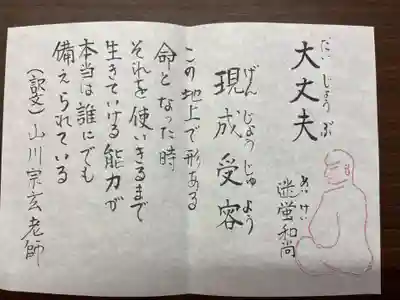 大丈夫
だいじょうぶ
現成受容
げんじょうじゅよう
迷蛍和尚
めいけい
この地上で形ある
命となった時
それを使いきるまで
生きていける能力が
本当は誰にでも
備えられている
(訳文)山川宗玄老師